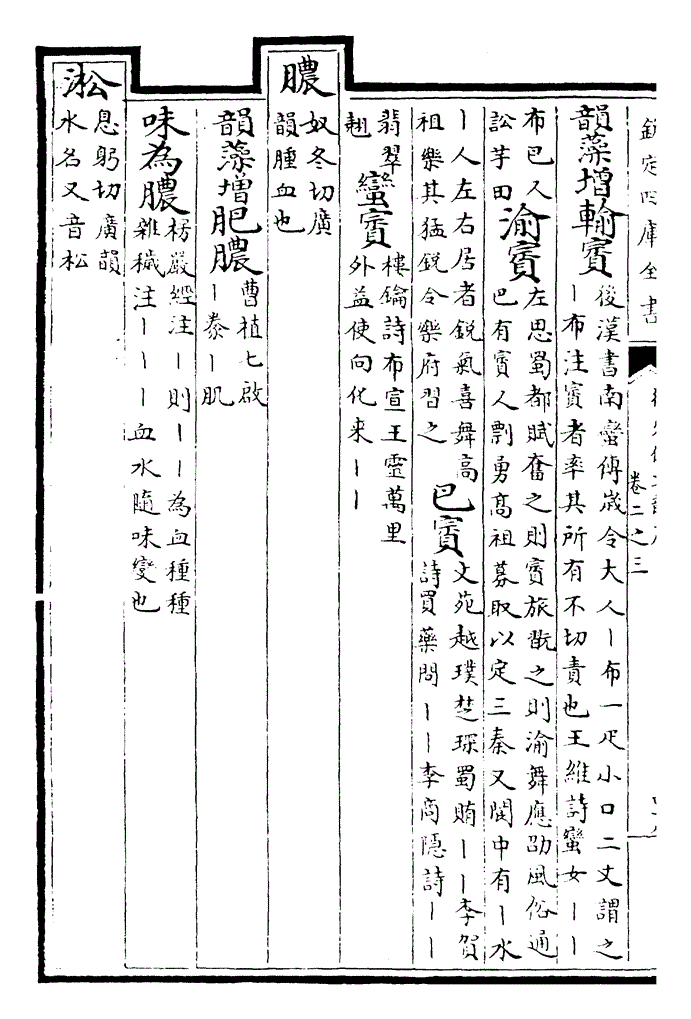 欽定四庫全書
卷二之三
韻藻增輸賨
後漢書南蠻傳歲令大人丨布一疋小口二丈謂之
丨布注賨者率其所有不切責也王維詩蠻女丨丨
布巴人
訟芋田
渝賨
左思蜀都賦奮之則賨旅翫之則渝舞應劭風俗通
巴有賨人剽勇高祖募取以定三秦又閬中有丨水
丨人左右居者銳氣喜舞高
祖樂其猛銳令樂府習之
巴賨
文苑越璞楚琛蜀賄丨丨李賀
詩買藥問丨丨李商隱詩丨丨
翡翠
翹
蠻賨
樓鑰詩布宣王靈萬里
外益使向化來丨丨
膿
奴冬切廣
韻腫血也
韻藻增肥膿
曹植七啟
丨豢丨肌
味為膿
楞嚴經注丨則丨丨為血種種
雜穢注丨丨丨血水隨味變也
淞
息躬切廣韻
水名又音松